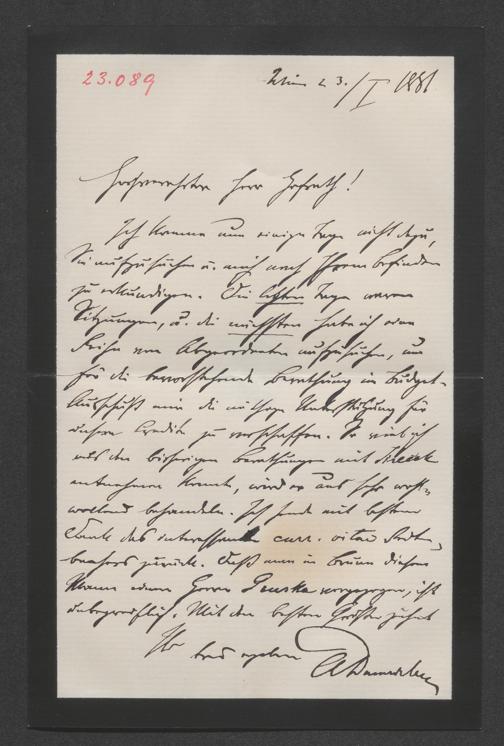 23.089
Wien 23./I 1881
Hochverehrter Herr Hofrath!
Ich komme nun einige Tage nicht dazu,
Sie aufzusuchen u. mich nach Ihrem Befinden
zu erkundigen. Die letzten Tage waren
Sitzungen, u. die nächsten habe ich eine
Reihe von Abgeordneten aufzusuchen, um
für die bevorstehende Berathung im Budget-
Ausschuß mir die nöthige Unterstützung für
unsere Credite zu verschaffen. So viel ich
aus den bisherigen Berathungen mit
entnehmen konnte, wird er uns sehr wohl-
wollend behandeln. Ich sende mit bestem
Dank das interessante curr. vitae
zurück. Daß man in Brünn diesem
Manne einen Herrn vorgezogen, ist
unbegreiflich. Mit den besten Grüßen zeichnet
Ihr
treu ergebener